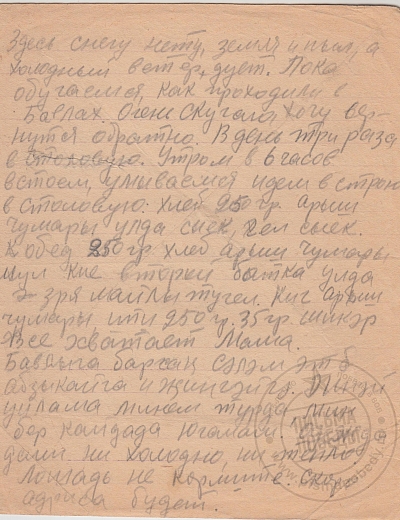 Здесь снегу нету, земля и пыл, а
холодный ветер дует. Пока
обучаемся как проходили в
Бавлах. Очень скучало, хочу вер-
нутся обратно. В день три раза
в столовую. Утром в 6 часов
встаем, умываемся идем в строю
в столовую: хлеб 250 гр. арыш
чумары улда сыек, сыек.
К обед 250 гр. хлеб арыш чумары
второй улда
зря майлы тугел. Кич арыш
чумары, ипи 250 гр. 35 гр. шикэр
Все хватает Мама.
Бавлыга барсаң сэлэм эт
абзыкайга и жингэйгэ.
уйлама минем турда мин
бер кайдада югалмам
ни холодно, ни
Лошадь не кормите.
адриса будет.